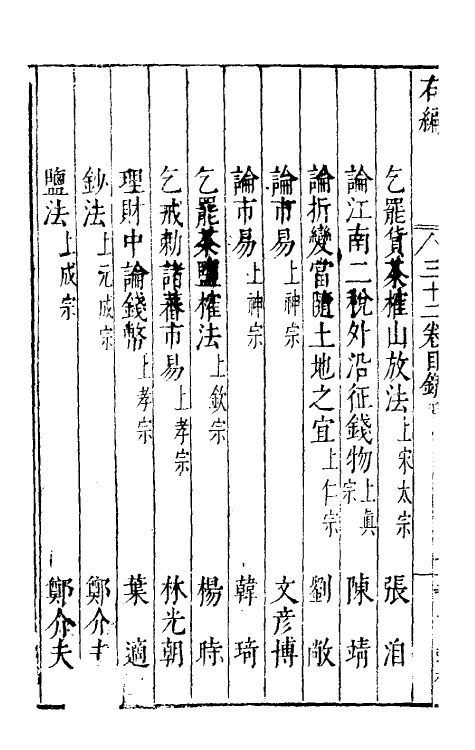 右編 三十二卷目錄
乞罷貨茶榷山放法 上宋太宗 張洎
論江南二稅外沿征錢物 上眞宗 陳靖
論折變當隨土地之宜 上仁宗 劉敞
論市易 上神宗 文彦博
論市易 上神宗 韓琦
乞罷茶鹽榷法 上欽宗 楊時
乞戒勅諸蕃市易 上孝宗 林光朝
理財中論錢幣 上孝宗 葉適
鈔法 上元成宗 鄭介夫
鹽法 上成宗 鄭介夫